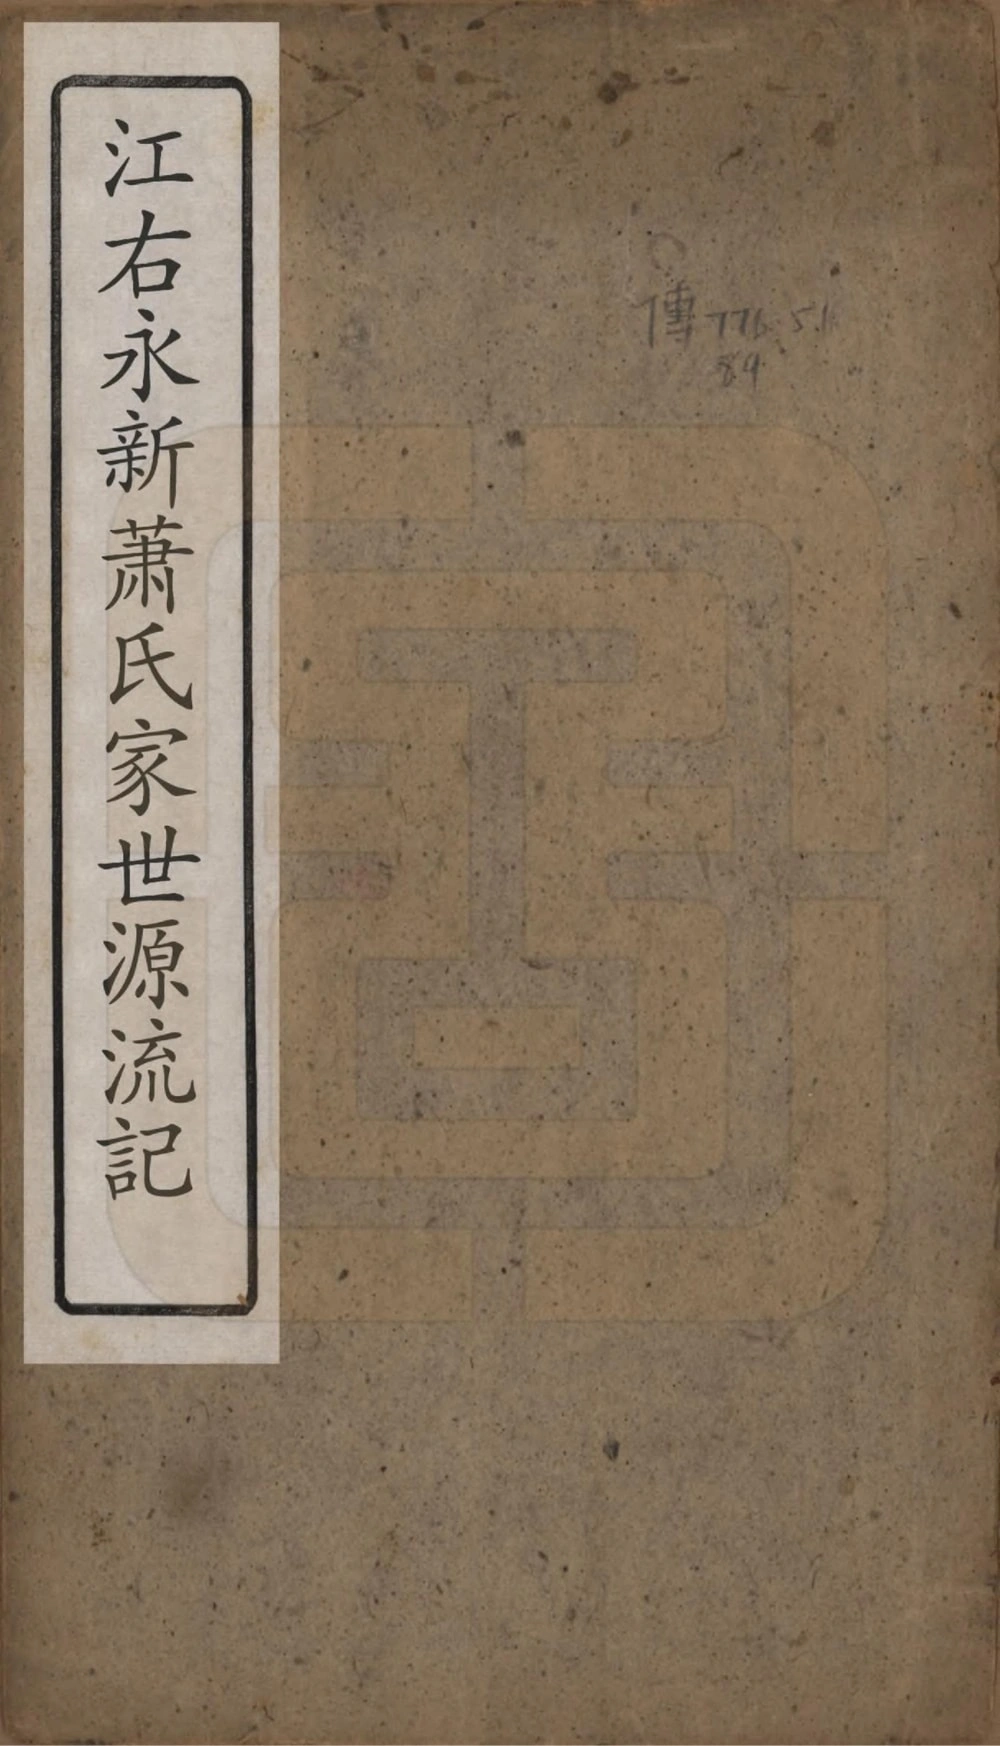 江右永新蕭氏家世源流記
傳 776.51
84